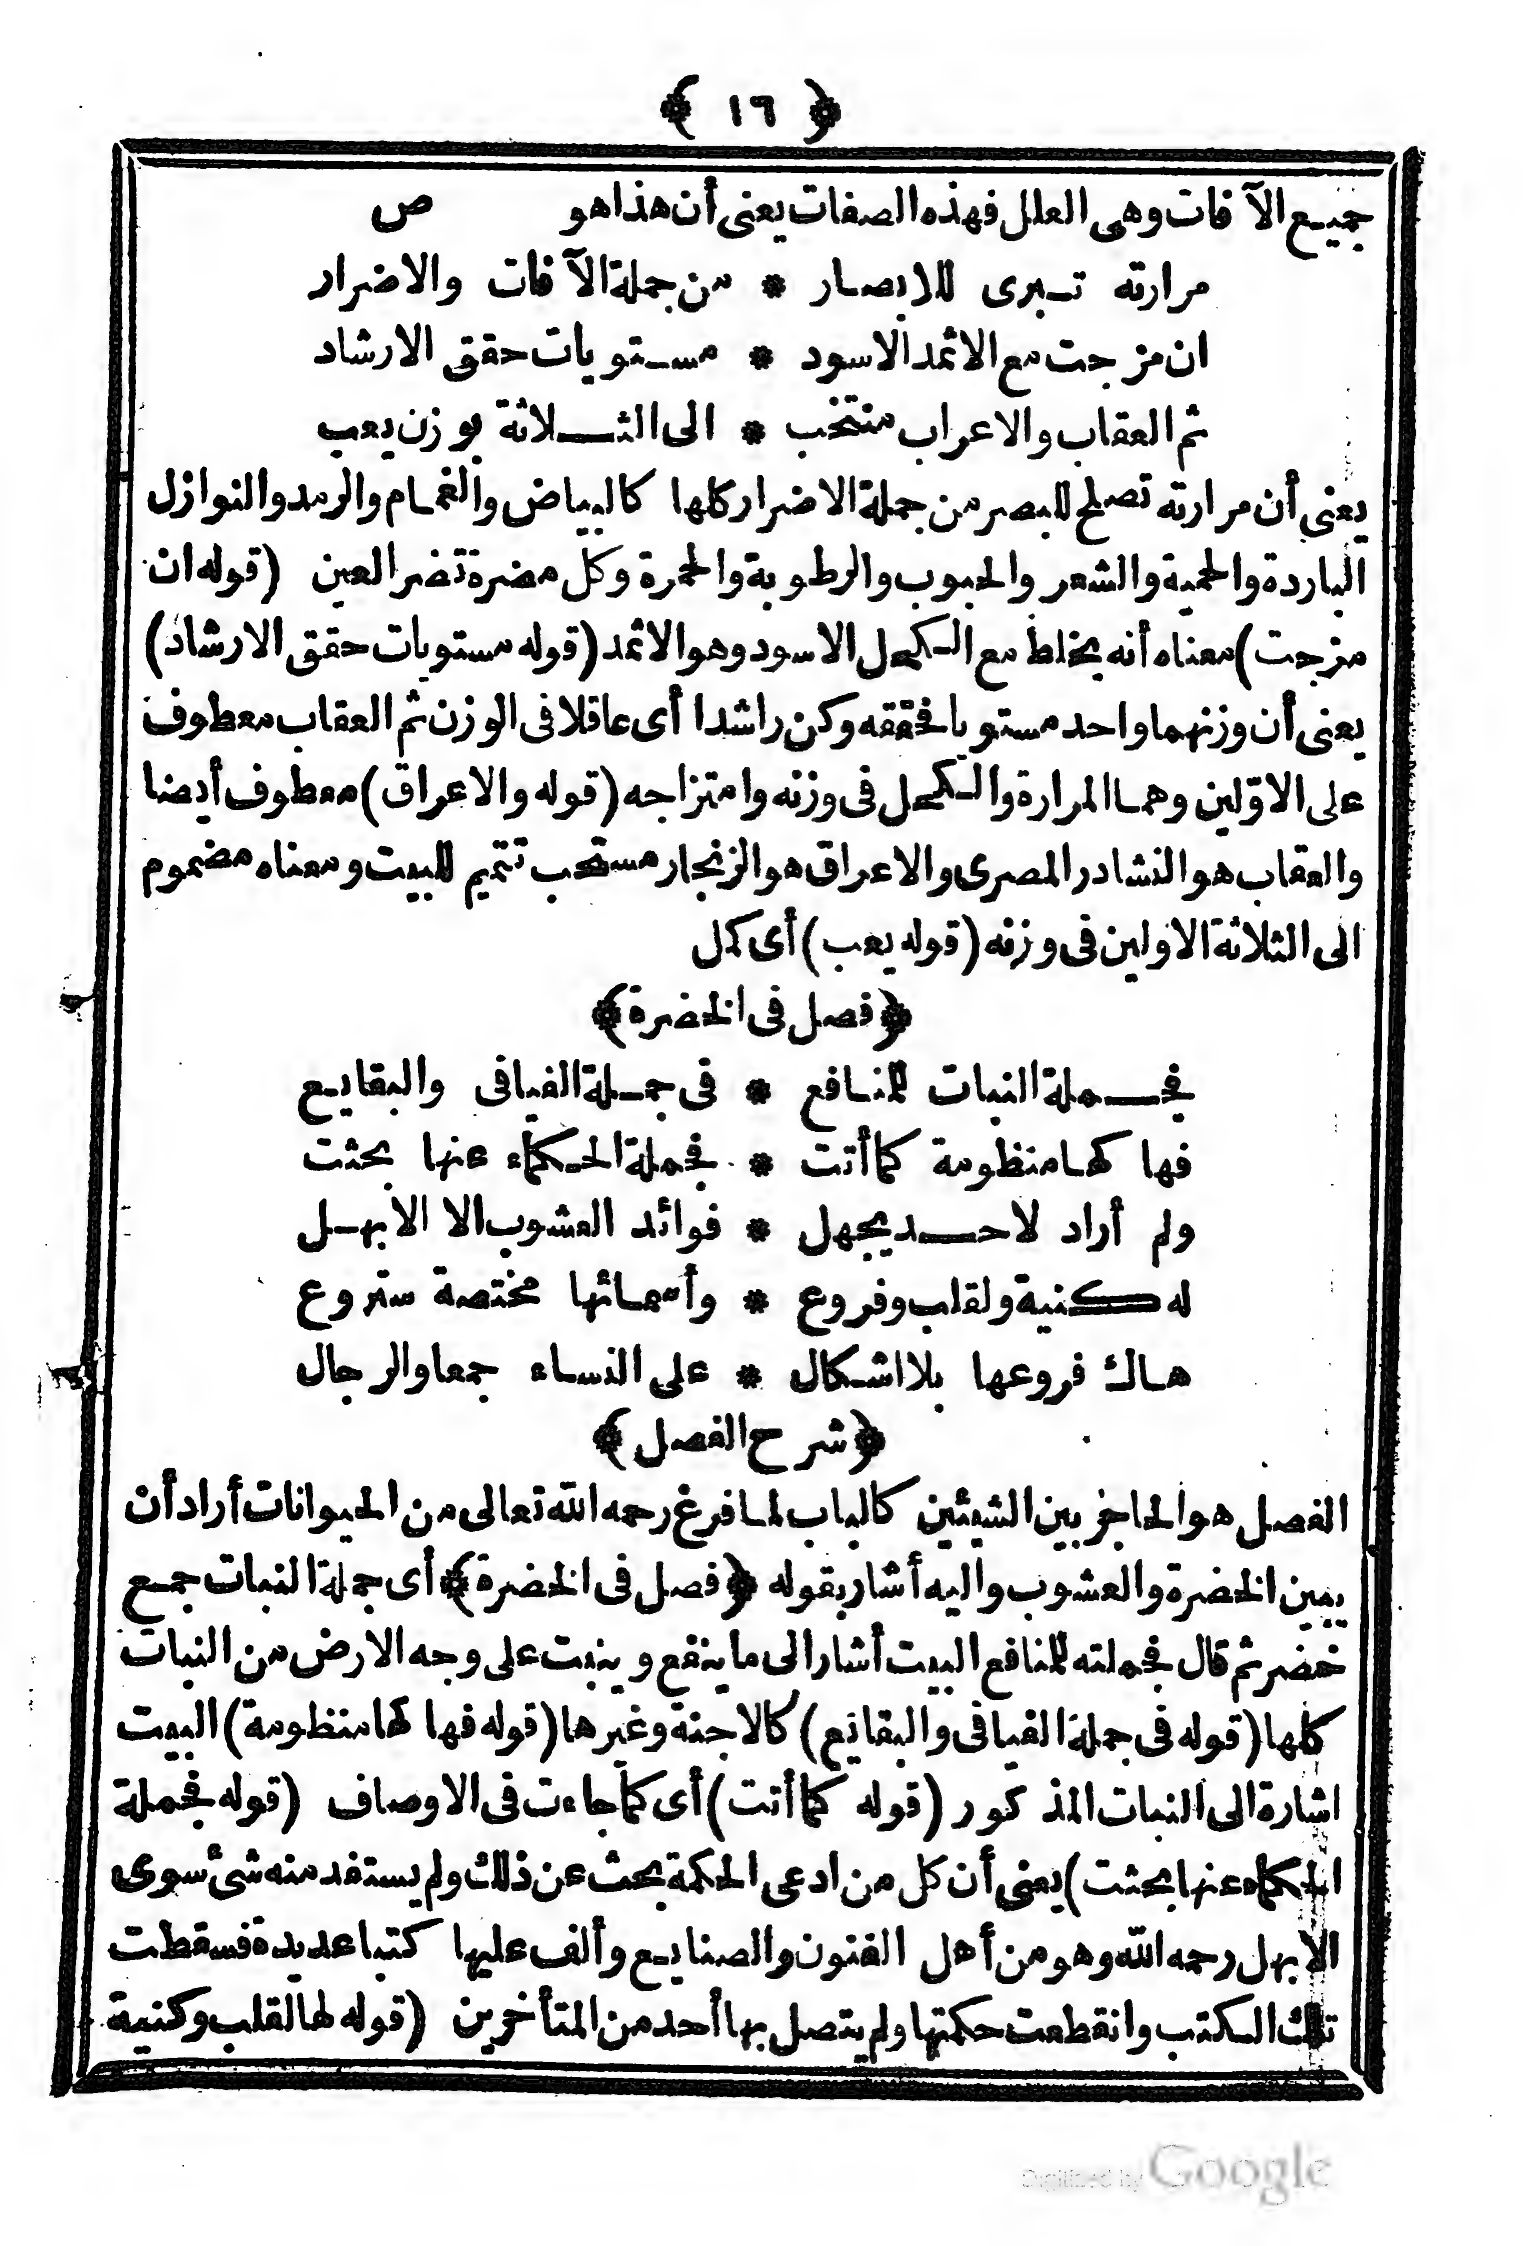 ﴿ ١٦ ﴾
جميع الآفات وهى العلل فهذه الصفات يعنى أن هذا هو ص
مرارته تبرى للابصار * من جملة الآفات والاضرار
ان مزجت مع الاثمد الاسود * مستويات حقق الارشاد
ثم العقاب والاعراب منتخب * الى الثلاثة بوزن يعب
يعنى أن مرارته تصلح للبصر من جملة الاضرار كلها كالبياض والغمام والرمد والنوازل
الباردة والحمية والشعر والحبوب والرطوبة والحمرة وكل مضرة تضر العين (قوله ان
مزجت) معناه أنه يخلط مع الكحل الاسود وهو الاثمد (قوله مستويات حقق الارشاد)
يعنى أن وزنهما واحد مستويا فحققه وكن راشدا أى عاقلا فى الوزن ثم العقاب معطوف
على الاوّلين وهما المرارة والكحل فى وزنه وامتزاجه (قوله والاعراق) معطوف أيضا
والعقاب هو النشادر المصرى والاعراق هو الزنجار مستحب تتميم للبيت ومعناه مضموم
الى الثلاثة الاولين فى وزنه (قوله يعب) أى كمل
﴿فصل فى الخضرة﴾
فجملة النبات للمنافع * فى جملة الفيافى والبقايع
فها كها منظومة كما أتت * فجملة الحكماء عنها بحثت
ولم أراد لاحد يجهل * فوائد العشوب الا الابهل
له كنية ولقلب وفروع * وأسمائها مختصة ستروع
هاك فروعها بلا اشكال * على النساء جمعا والرجال
﴿شرح الفصل﴾
الفصل هو الحاجز بين الشيئين كالباب لما فرغ رحمه الله تعالى من الحيوانات أراد أن
يبين الخضرة والعشوب واليه أشار بقوله ﴿فصل فى الخضرة﴾ أى جملة النبات جمع
خضر ثم قال فجملته للمنافع البيت أشار الى ما ينفع وينبت على وجه الارض من النبات
كلها (قوله فى جملة الفيافى والبقايع) كالاجنة وغيرها (قوله فها كها منظومة) البيت
اشارة الى النبات المذكور (قوله كما أتت) أى كما جاءت فى الاوصاف (قوله فجملة
الحكماء عنها بحثت) يعنى أن كل من ادعى الحكمة بحث عن ذلك ولم يستفد منه شئ سوى
الابهل رحمه الله وهو من أهل الفنون والصنايع وألف عليها كتبا عديدة فسقطت
تلك الكتب وانقطعت حكمتها ولم يتصل بها أحد من المتأخرين (قوله لها لقلب وكنية
Digitized by Google